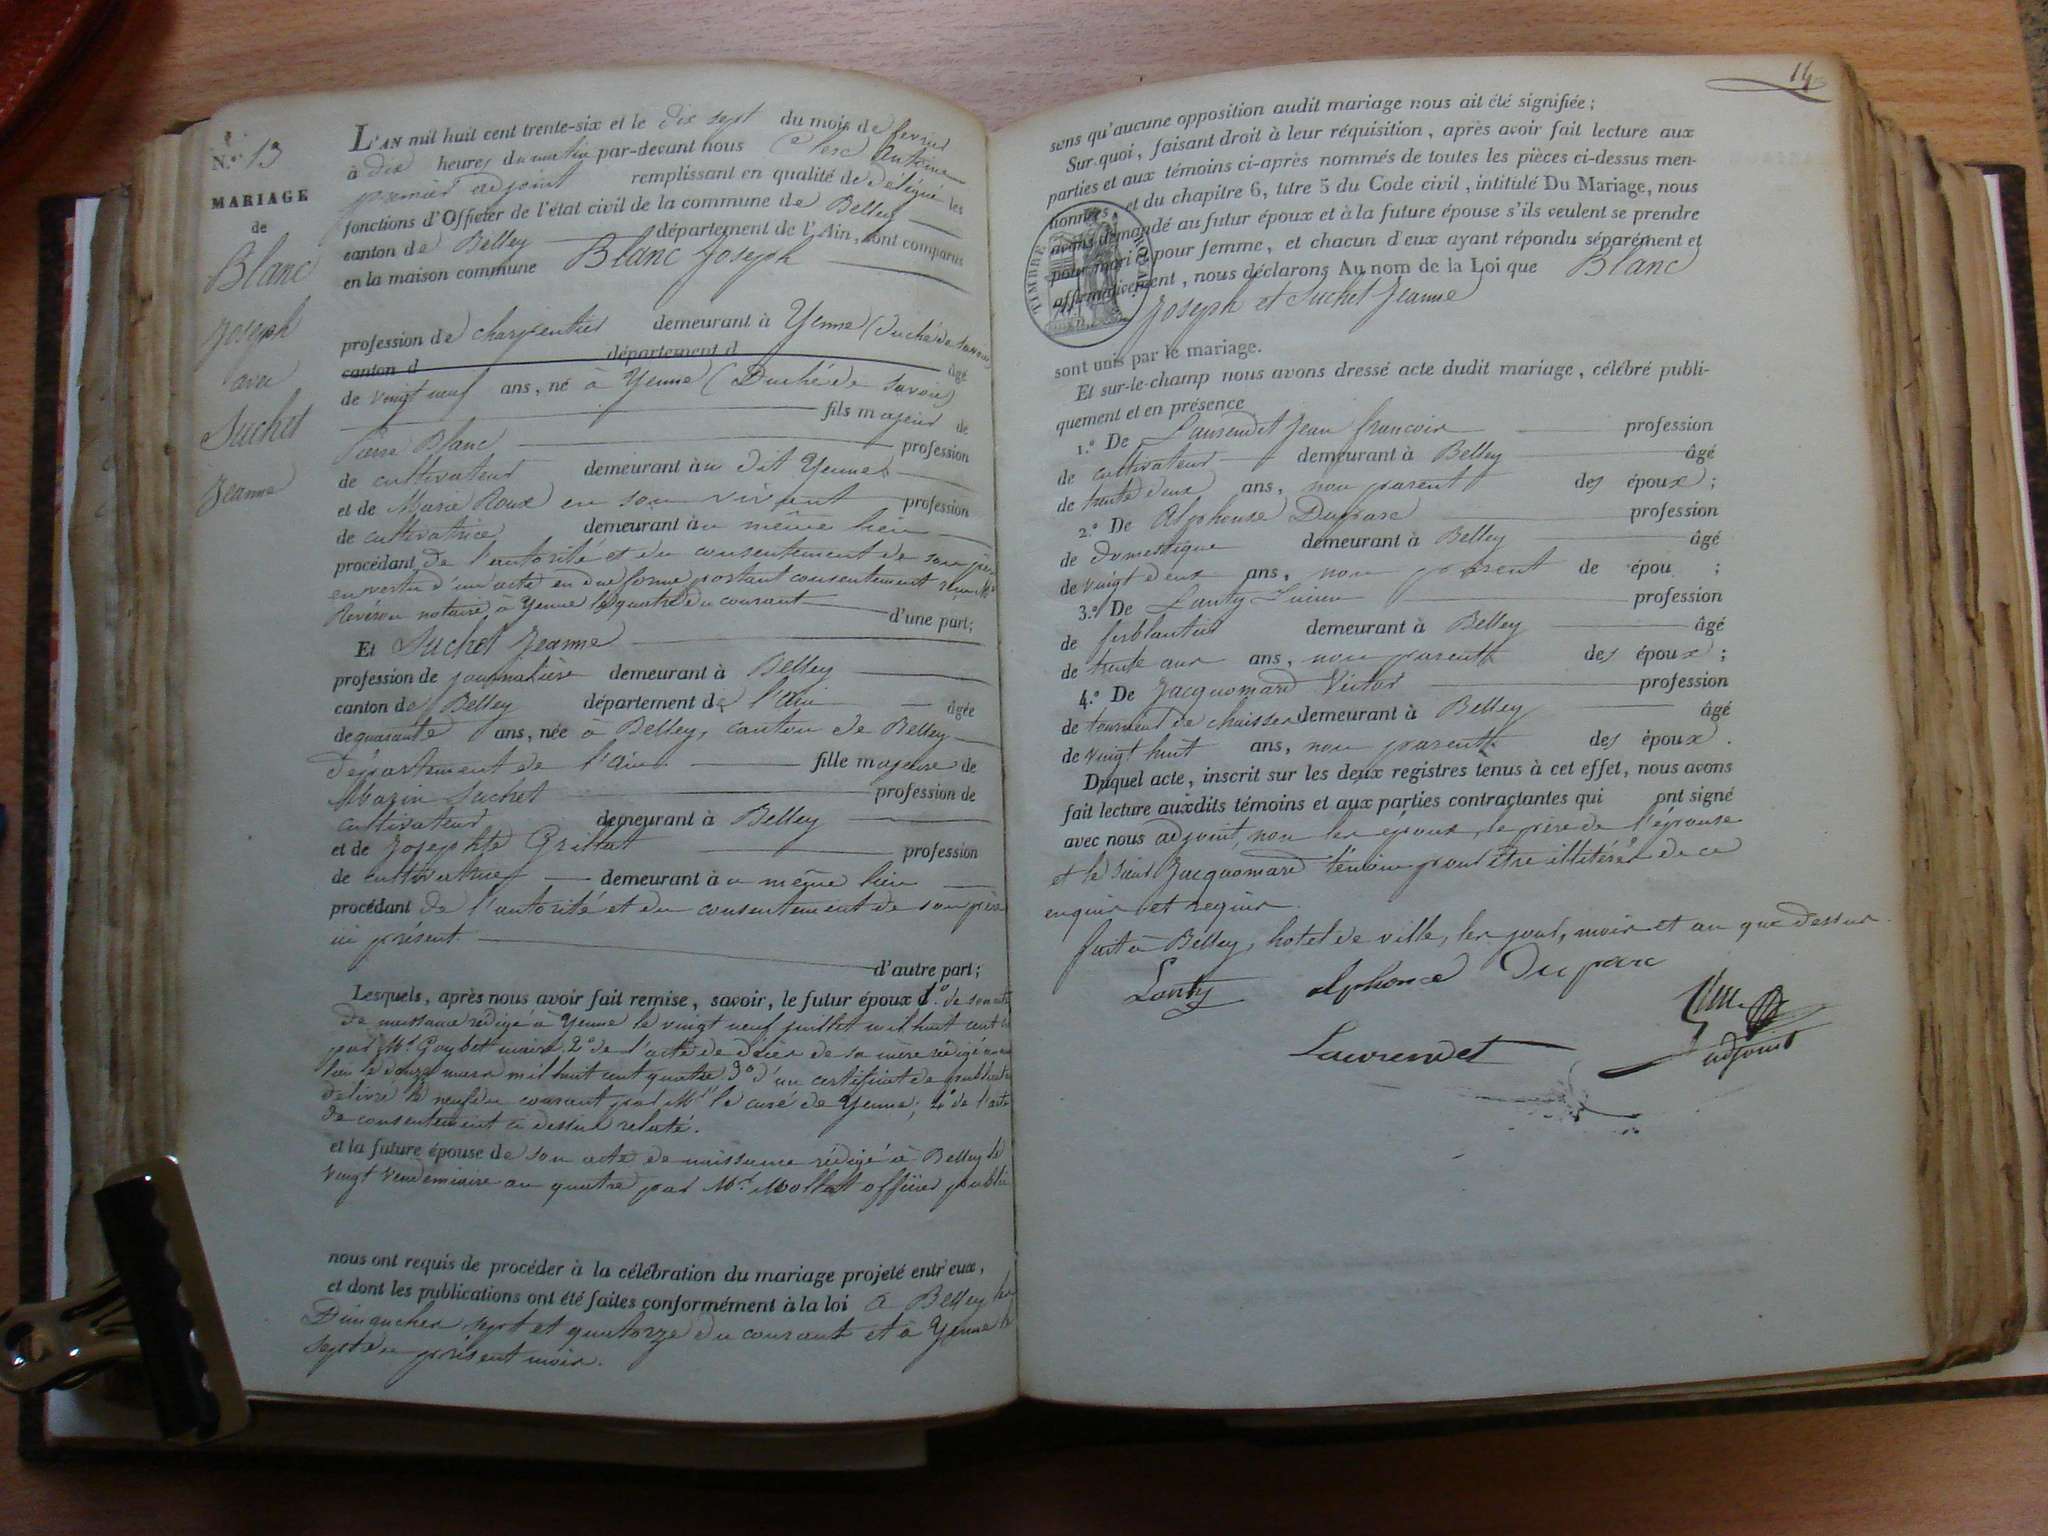 N.º 13
MARIAGE
de
Blanc
Joseph
avec
Suchet
Jeanne
L'AN mil huit cent trente-six et le dix sept du mois de fevrier
à dix heures du matin par-devant nous Antoine
premier adjoint remplissant en qualité de délégué les
fonctions d'Officier de l'état civil de la commune de Belley
canton de Belley département de l'Ain, sont comparus
en la maison commune Blanc Joseph
profession de charpentier demeurant à Yenne (Duché de Savoie)
canton d département d âgé
de vingt neuf ans, né à Yenne (Duché de Savoie)
fils majeur de
Pierre Blanc profession
de cultivateur demeurant au dit Yenne
et de Marie Roux en son vivant profession
de cultivatrice demeurant au même lieu
procédant de l'autorité et du consentement de son père
en vertu d'un acte en due forme portant consentement reçu Me
notaire à Yenne le quatre du courant d'une part;
Et Suchet Jeanne
profession de journalière demeurant à Belley
canton de Belley département de l'ain âgée
de quarante ans, née à Belley, canton de Belley
département de l'ain fille majeure de
Suchet profession de
cultivateur demeurant à Belley
et de Josephte Grillat profession
de cultivatrice demeurant au même lieu
procédant de l'autorité et du consentement de son père
ici présent d'autre part;
Lesquels, après nous avoir fait remise, savoir, le futur époux 1º de son acte
de naissance rédigé à Yenne le vingt neuf juillet mil huit cent six
par Mr Goybet maire, 2º de l'acte de décès de sa mère rédigé
le douze mars mil huit cent quatre 3º d'un certificat de publication
délivré le neuf du courant par Mr le curé de Yenne; 4º de l'acte
de consentement ci dessus relaté.
et la future épouse de son acte de naissance rédigé à Belley le
vingt vendemiaire an quatre par Mr Mollet officier public
nous ont requis de procéder à la célébration du mariage projeté entr'eux,
et dont les publications ont été faites conformément à la loi à Belley les
Dimanches sept et quatorze du courant et à Yenne le
sept du présent mois.
14
sans qu'aucune opposition audit mariage nous ait été signifiée;
Sur quoi, faisant droit à leur réquisition, après avoir fait lecture aux
parties et aux témoins ci-après nommés de toutes les pièces ci-dessus men-
tionnées et du chapitre 6, titre 5 du Code civil, intitulé Du Mariage, nous
avons demandé au futur époux et à la future épouse s'ils veulent se prendre
pour mari et pour femme, et chacun d'eux ayant répondu séparément et
affirmativement, nous déclarons Au nom de la Loi que Blanc
Joseph et Suchet Jeanne
TIMBRE ROYAL
sont unis par le mariage.
Et sur-le-champ nous avons dressé acte dudit mariage, célébré publi-
quement et en présence
1.º De Laurendet Jean françois profession
de cultivateur demeurant à Belley âgé
de trente deux ans, non parent des époux;
2.º De Alphonse Duparc profession
de domestique demeurant à Belley âgé
de vingt deux ans, non parent de épou ;
3.º De Lanty Lucien profession
de ferblantier demeurant à Belley âgé
de trente ans ans, non parent des époux;
4.º De Jacquomard Victor profession
de tourneur de chaises demeurant à Belley âgé
de vingt huit ans, non parent des époux.
Duquel acte, inscrit sur les deux registres tenus à cet effet, nous avons
fait lecture auxdits témoins et aux parties contractantes qui ont signé
avec nous adjoint, non les époux, le père de l'épouse
et le sieur Jacquomard témoin pour être illitérés de ce
enquis et requis.
fait à Belley, hotel de ville, les jour, mois et an que dessus.
Lanty alphonce Duparc
Laurendet
adjoint